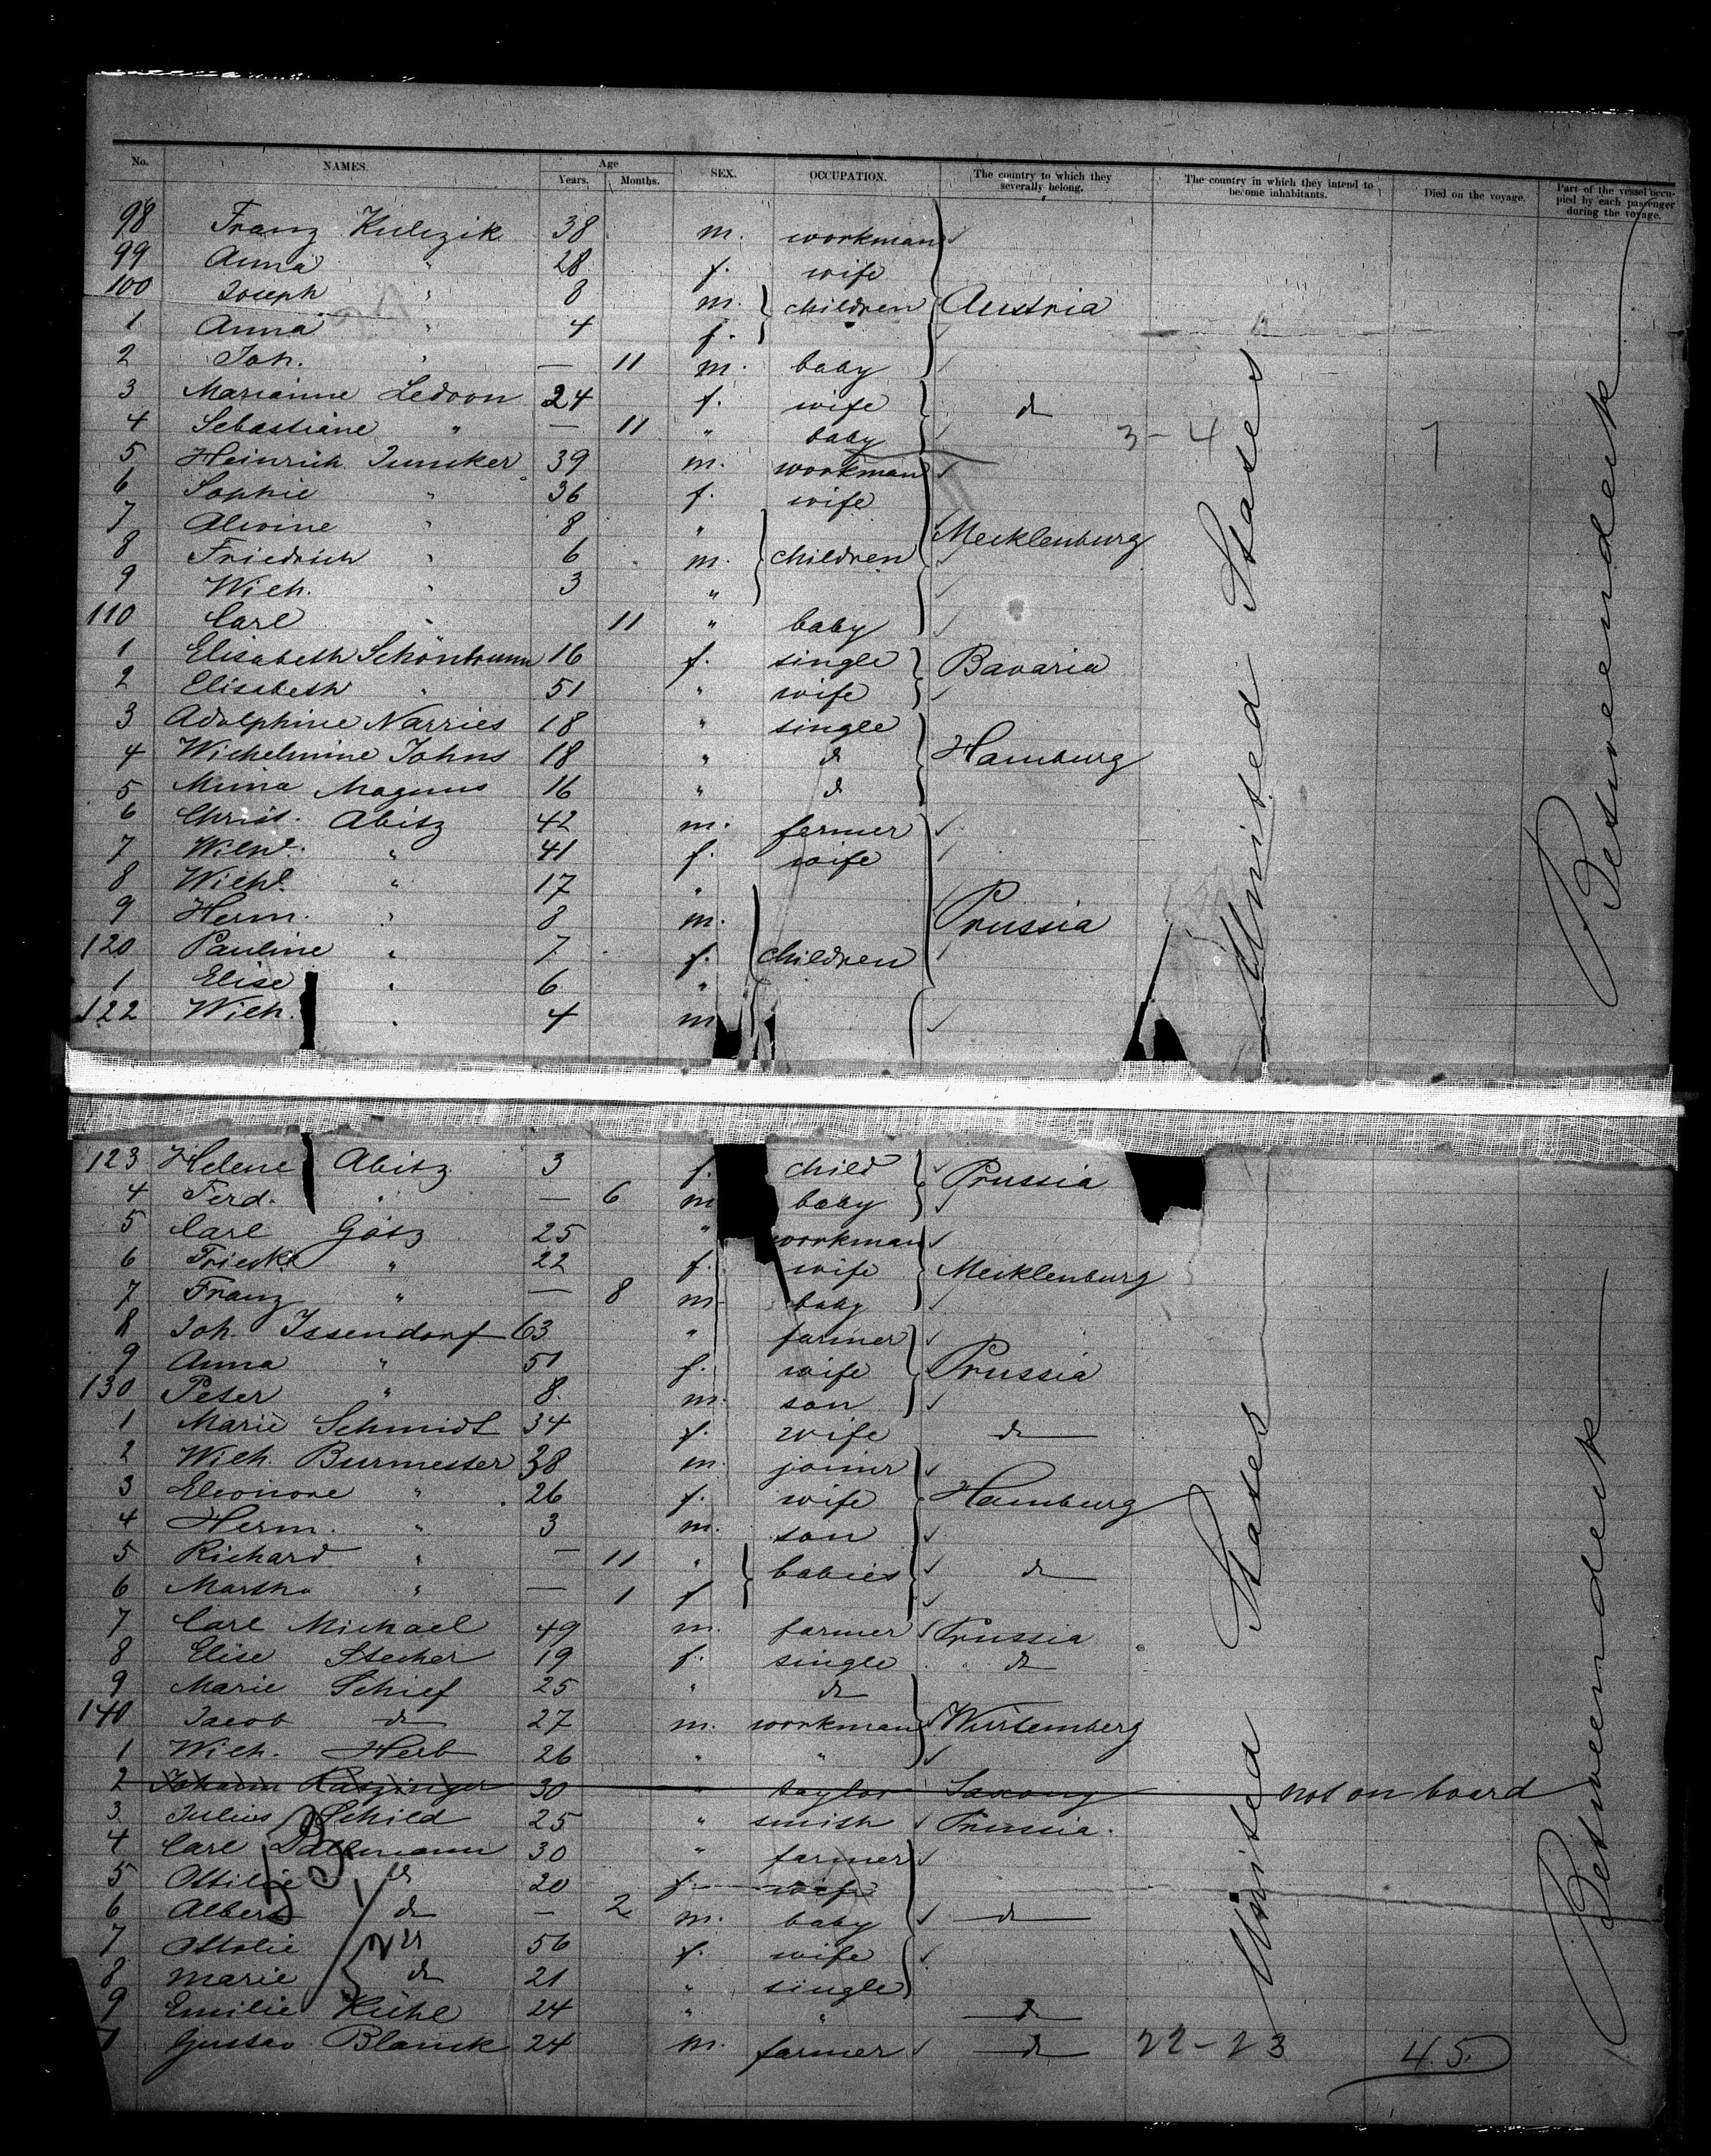 No. NAMES. Age Years. Months. SEX. OCCUPATION. The country to which they severally belong. The country in which they intend to become inhabitants. Died on the voyage. Part of the vessel occupied by each passenger during the voyage.
98 Franz Kulczik 38 m. workman
99 Anna " 28 f. wife
100 Joseph " 8 m. children Austria
1 Anna " 4 f.
2 Joh. " — 11 m. baby
3 Marianne Ledvon 24 f. wife do
4 Sebastiane " — 11 " baby 3-4 1
5 Heinrich Juncker 39 m. workman
6 Sophie " 36 f. wife
7 Alwine " 8 " Mecklenburg
8 Friedrich " 6 m. children
9 Wilh. " 3 "
110 Carl " 11 " baby
1 Elisabeth Schönbrunn 16 f. single Bavaria
2 Elisabeth " 51 " wife
3 Adolphine Narries 18 " single
4 Wilhelmine Johns 18 " do Hamburg
5 Minna Magnus 16 " do
6 Christ. Abitz 42 m. farmer
7 Wilhe. " 41 f. wife
8 Wilhe. " 17 "
9 Herm. " 8 m. Prussia
120 Pauline " 7 f. children
1 Elise " 6 "
122 Wilh. " 4 m
United States
Betweendeck
123 Helene Abitz 3 f. child Prussia
4 Ferd. " — 6 m baby
5 Carl Götz 25 " workman
6 Friedke " 22 f. wife Mecklenburg
7 Franz " — 8 m baby
8 Joh. Issendorf 63 " farmer
9 Anna " 51 f. wife Prussia
130 Peter " 8. m. son
1 Marie Schmidt 34 f. wife do
2 Wilh. Burmester 38 m. joiner
3 Eleonore " 26 f. wife Hamburg
4 Herm. " 3 m. son
5 Richard " — 11 " babies do
6 Martha " — 1 f
7 Carl Michael 49 m. farmer Prussia
8 Elise Stecher 19 f. single do
9 Marie Schief 25 " do
140 Jacob do 27 m. workman Würtemberg
1 Wilh. Herb 26 " "
2 Johann Ratzinger 30 " taylor Saxony not on board
3 Julius Schild 25 " smith Prussia.
4 Carl Dallmann 30 " farmer
5 Ottilie do 20 f. wife
6 Albert do — 2 m. baby do
7 Ottolie do 56 f. wife
8 Marie do 21 " single
9 Emilie Kühl 24 " " do
Gustav Blanck 24 m. farmer do 22-23 45
United States
Betweendeck